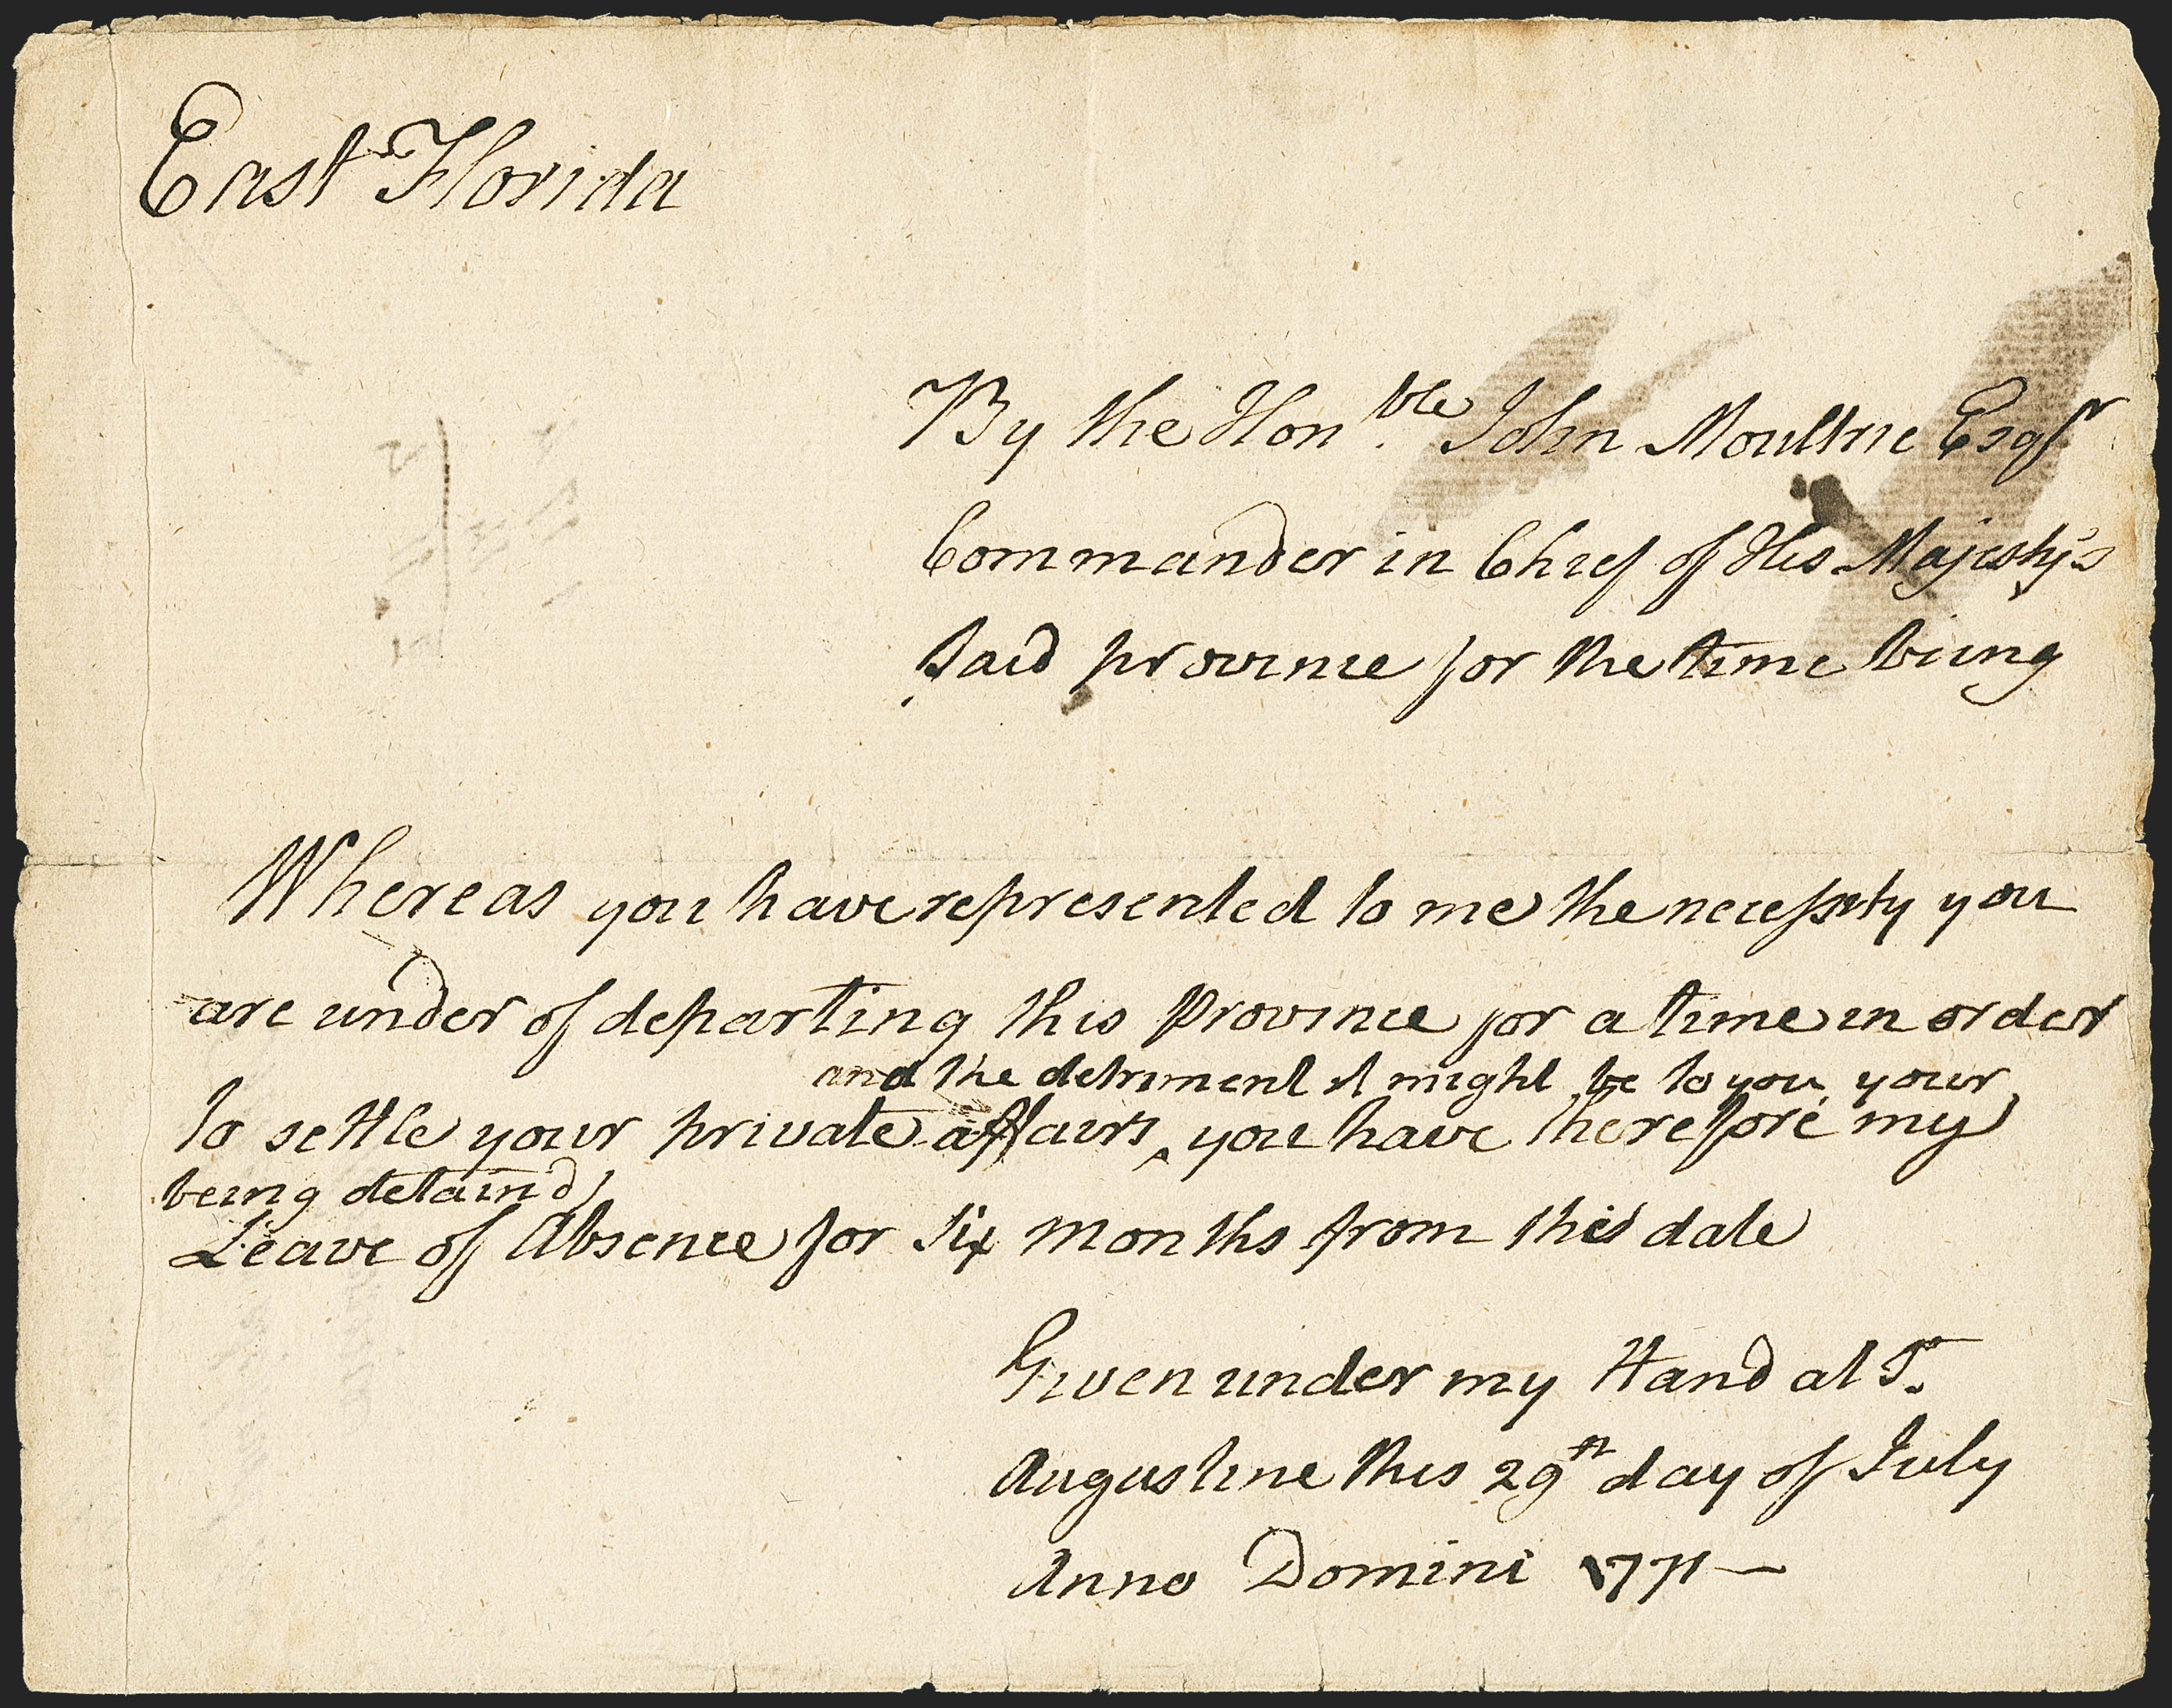 East Florida
By the Hon.ble John Moultrie Esqr
Commander in Chief of His Majesty's
Said province for the time being
Whereas you have represented to me the necessity you
are under of departing this Province for a time in order
and the detriment it might be to you your
to settle your private affairs ‸ you have therefore my
being detain'd
Leave of Absence for Six Months from this date
Given under my Hand at St.
Augustine this 29th day of July
Anno Domini 1771 —